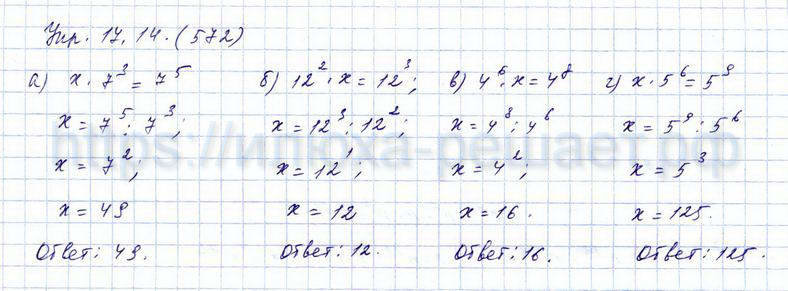 Упр. 17.14. (572)
а) x · 7³ = 7⁵
x = 7⁵ : 7³;
x = 7²;
x = 49
Ответ: 49.
б) 12² · x = 12³;
x = 12³ : 12²;
x = 12¹;
x = 12
Ответ: 12.
в) 4⁶ · x = 4⁸
x = 4⁸ : 4⁶
x = 4²;
x = 16.
Ответ: 16.
г) x · 5⁶ = 5⁹
x = 5⁹ : 5⁶
x = 5³
x = 125.
Ответ: 125.
https://илюха-решает.рф